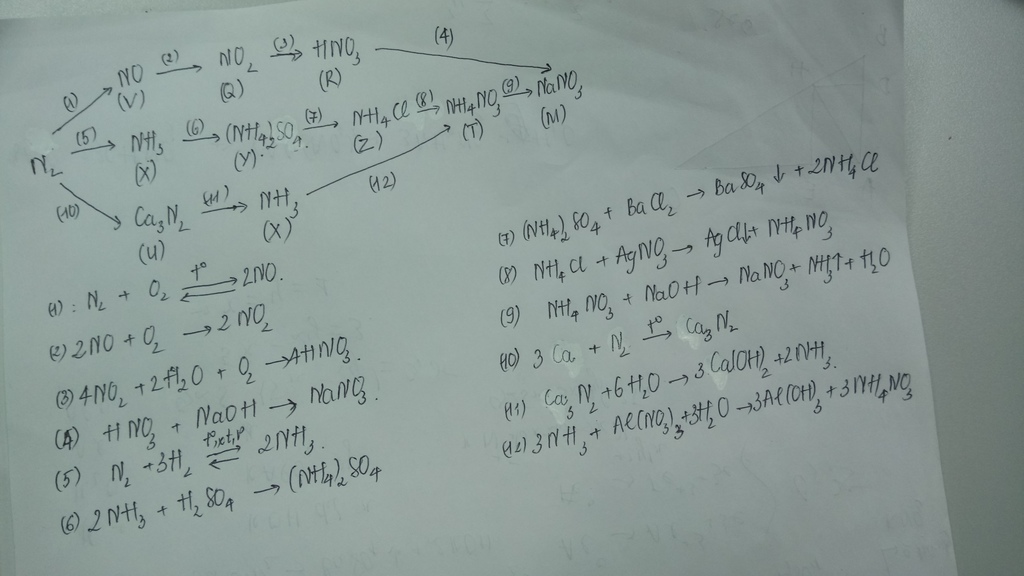 (1) NO (2) NO₂ (3) HNO₃ (4)
(V) (Q) (R)
N₂ (5) NH₃ (6) (NH₄)₂SO₄ (7) NH₄Cl (8) NH₄NO₃ (9) NaNO₃
(X) (Y) (Z) (T) (M)
(10) Ca₃N₂ (11) NH₃ (12)
(U) (X)
(1) : N₂ + O₂ t° ⇌ 2NO.
(2) 2NO + O₂ → 2NO₂
(3) 4NO₂ + 2H₂O + O₂ → 4HNO₃.
(4) HNO₃ + NaOH → NaNO₃.
(5) N₂ + 3H₂ t°, xt, p ⇌ 2NH₃.
(6) 2NH₃ + H₂SO₄ → (NH₄)₂SO₄
(7) (NH₄)₂SO₄ + BaCl₂ → BaSO₄ ↓ + 2NH₄Cl
(8) NH₄Cl + AgNO₃ → AgCl↓ + NH₄NO₃
(9) NH₄NO₃ + NaOH → NaNO₃ + NH₃↑ + H₂O
(10) 3Ca + N₂ t° → Ca₃N₂
(11) Ca₃N₂ + 6H₂O → 3Ca(OH)₂ + 2NH₃.
(12) 3NH₃ + Al(NO₃)₃ + 3H₂O → 3Al(OH)₃ + 3NH₄NO₃